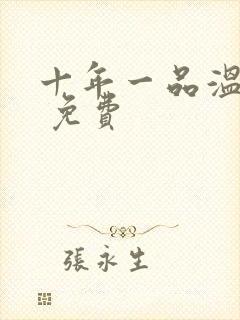 十年一品溫
免費
張永生